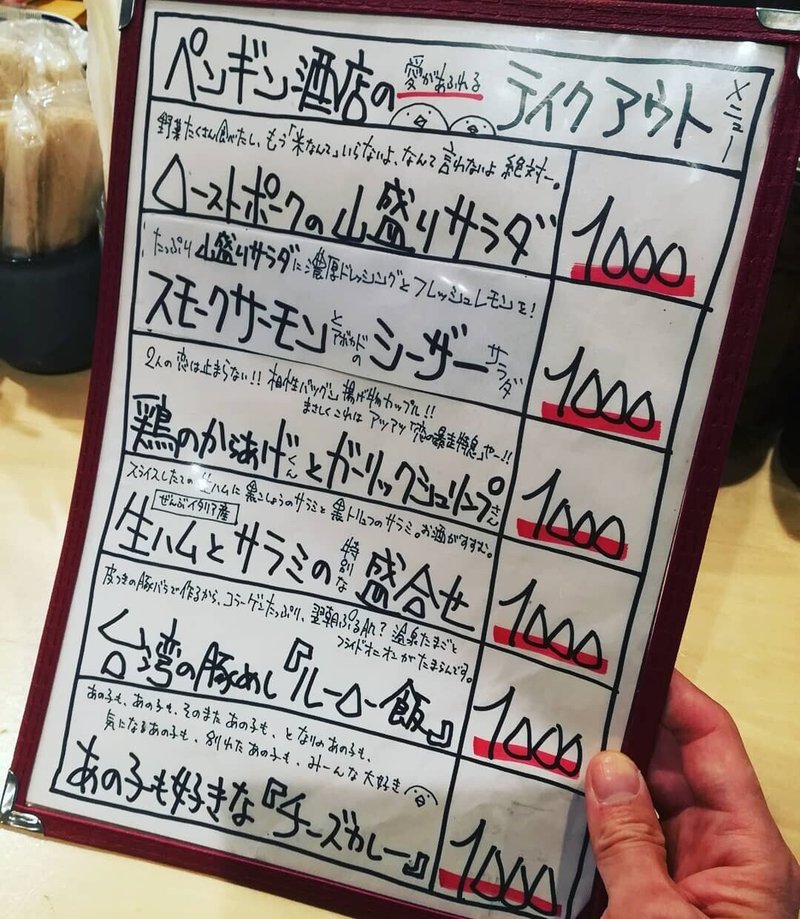 ペンギン酒店の愛があふれるテイクアウトメニュー
野菜たくさん食べたし、もう「米なんて」いらないよ、なんて言わないよ絶対ー。
ローストポークの山盛りサラダ 1000
たっぷり山盛りサラダに濃厚ドレッシングとフレッシュレモンを!
スモークサーモンとアボカドのシーザーサラダ 1000
2人の恋は止まらない!!相性バツグン揚げ物カップル!!
まさしくこれはアツアツ「恋の暴走特急」やー!!
鶏のからあげくんとガーリックシュリンプさん 1000
スライスしたての生ハムに黒こしょうのサラミと黒トリュフのサラミ。お酒がすすむ。
ぜんぶイタリア産
生ハムとサラミの特別な盛合せ 1000
皮つきの豚バラで作るから、コラーゲンたっぷり、翌朝ぷるぷる?温泉たまごと
フライドオニオンがたまらんです。
台湾の豚めし『ルーロー飯』 1000
あの子も、あの子も、そのまたあの子も、となりのあの子も、
気になるあの子も、別れたあの子も、みーんな大好き
あの子も好きな『チーズカレー』 1000